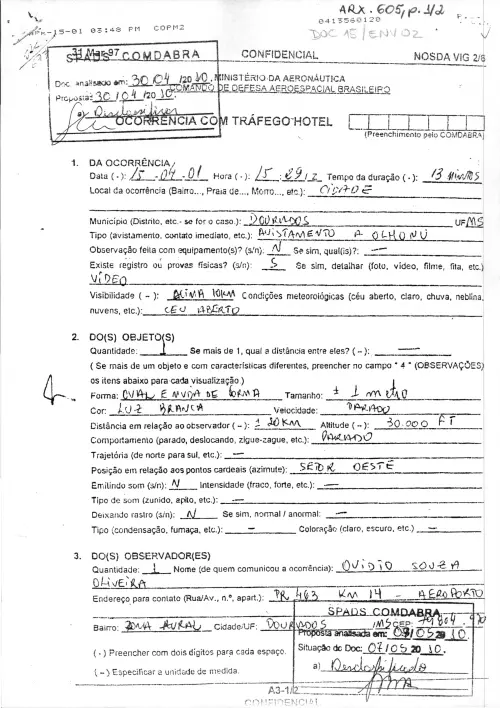 ARX. 605, p. 1/2
15-01 03:48 PM COPM2 0413560120
DOC 15/ENV 02
31 Mar 97 CONFIDENCIAL NOSDA VIG 2/6
SPADS COMDABRA
Doc. analisado em: 30/04/2010. MINISTÉRIO DA AERONÁUTICA
Proposta: 30/04/2010. COMANDO DE DEFESA AEROESPACIAL BRASILEIRO
a) Desclassificar
OCORRÊNCIA COM TRÁFEGO HOTEL
(Preenchimento pelo COMDABRA)
1. DA OCORRÊNCIA
Data ( - ): 15.04.01 Hora ( - ): 15:29:2 Tempo da duração ( - ): 13 minutos
Local da ocorrência (Bairro..., Praia de..., Morro..., etc.): CIDADE
Município (Distrito, etc.- se for o caso.): DOURADOS UF MS
Tipo (avistamento, contato imediato, etc.): AVISTAMENTO A OLHO NU
Observação feita com equipamento(s)? (s/n): N Se sim, qual(is)?: —
Existe registro ou provas físicas? (s/n): S Se sim, detalhar (foto, vídeo, filme, fita, etc.)
VÍDEO
Visibilidade ( ~ ): ACIMA 10KM Condições meteorológicas (céu aberto, claro, chuva, neblina,
nuvens, etc.): CEU ABERTO
2. DO(S) OBJETO(S)
Quantidade: 1 Se mais de 1, qual a distância entre eles? ( ~ ): —
( Se mais de um objeto e com características diferentes, preencher no campo " 4 " (OBSERVAÇÕES)
os itens abaixo para cada visualização )
Forma: OVAL E MUDA DE FORMA Tamanho: ± 1 metro
Cor: LUZ BRANCA Velocidade: PARADO
Distância em relação ao observador ( ~ ): ± 20KM Altitude ( ~ ): 30.000 FT
Comportamento (parado, deslocando, zigue-zague, etc.): PARADO
Trajetória (de norte para sul, etc.): —
Posição em relação aos pontos cardeais (azimute): SETOR OESTE
Emitindo som (s/n): N Intensidade (fraco, forte, etc.): —
Tipo de som (zunido, apito, etc.): —
Deixando rastro (s/n): N Se sim, normal / anormal: —
Tipo (condensação, fumaça, etc.): — Coloração (claro, escuro, etc.) —
3. DO(S) OBSERVADOR(ES)
Quantidade: 1 Nome (de quem comunicou a ocorrência): OVIDIO SOUZA
OLIVEIRA
Endereço para contato (Rua/Av., n.º, apart.): PR 463 KM 14 - AEROPORTO
SPADS COMDABRA
Bairro: ZONA RURAL Cidade/UF: DOURADOS /MS CEP: 79804 970
Proposta analisada em: 07/05 20 10.
( - ) Preencher com dois dígitos para cada espaço. Situação do Doc: 07/05 20 10.
( ~ ) Especificar a unidade de medida. a) Desclassificado
A3-1/2
CONFIDENCIAL